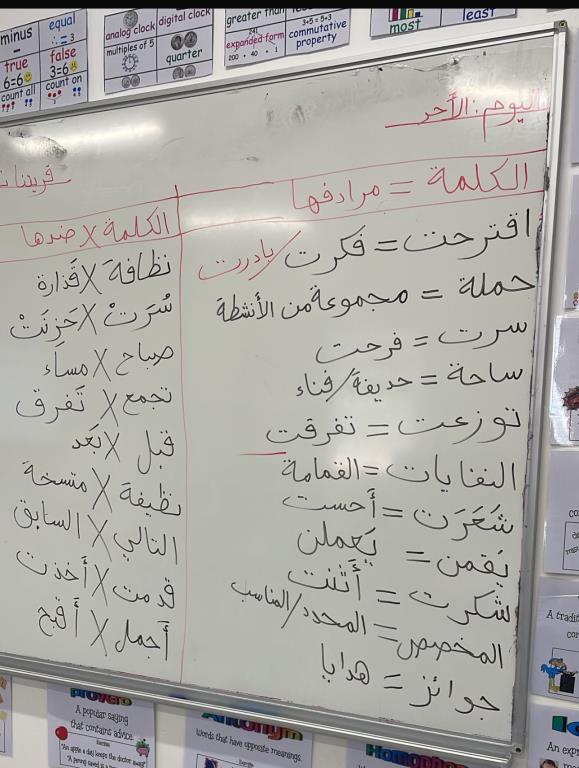 minus
equal
-
: - = 3
true
false
6=6
3=6
count all
count on
analog clock
digital clock
multiples of 5
quarter
greater than
241
expanded form
200 + 40 + 1
3+5 = 5+3
commutative
property
most
least
اليوم: الأحر
الكلمة = مرادفها
اقترحت = فكرت/بادرت
حملة = مجموعة من الأنشطة
سرت = فرحت
ساحة = حديقة/فناء
توزعت = تفرقت
النفايات = القمامة
شَعَرَت = أحست
يَقمن = يَعملن
شكرت = أَثنت
المخصص = المحدد/المناسب
جوائز = هدايا
الكلمة X ضدها
نظافة X قَذارة
سُرَتْ X حَزِنَتْ
صباح X مساء
تجمع X تَفرق
قبل X بَعد
نظيفة X متسخة
التالي X السابق
قدمت X أَخذت
أَجمل X أَقبح
proverb
A popular saying
that contains advice.
"An apple a day keeps the doctor away"
Antonym
Words that have opposite meanings.
Homophone
A tradit
An expr